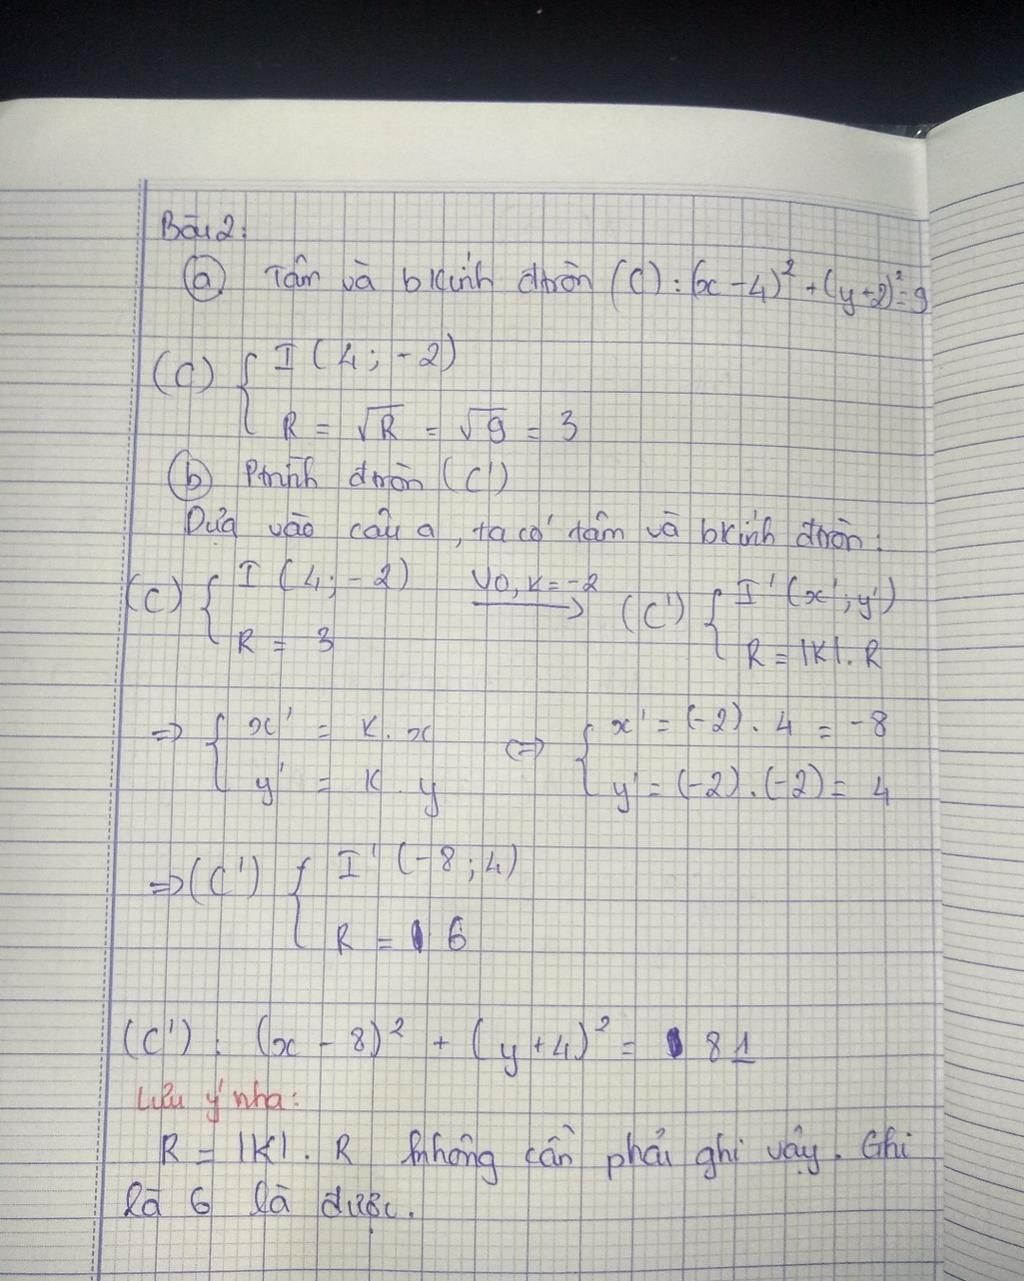 Bài 2:
(a) Tâm và bkính đtròn (C): (x-4)² + (y+2)² = 9
(C) { I (4; -2)
R = √R = √9 = 3
(b) Ptrình đtròn (C')
Dựa vào câu a, ta có tâm và bkính đtròn:
(C) { I (4; -2) V0, K = -2 → (C') { I' (x'; y')
R = 3 R = |K|. R
⇒ { x' = K. x ⇔ { x' = (-2). 4 = -8
y' = K. y y' = (-2). (-2) = 4
⇒ (C') { I' (-8; 4)
R = 6
(C'): (x - 8)² + (y + 4)² = 81
Lưu ý nha:
R = |K|. R không cần phải ghi vậy. Ghi
là 6 là được.